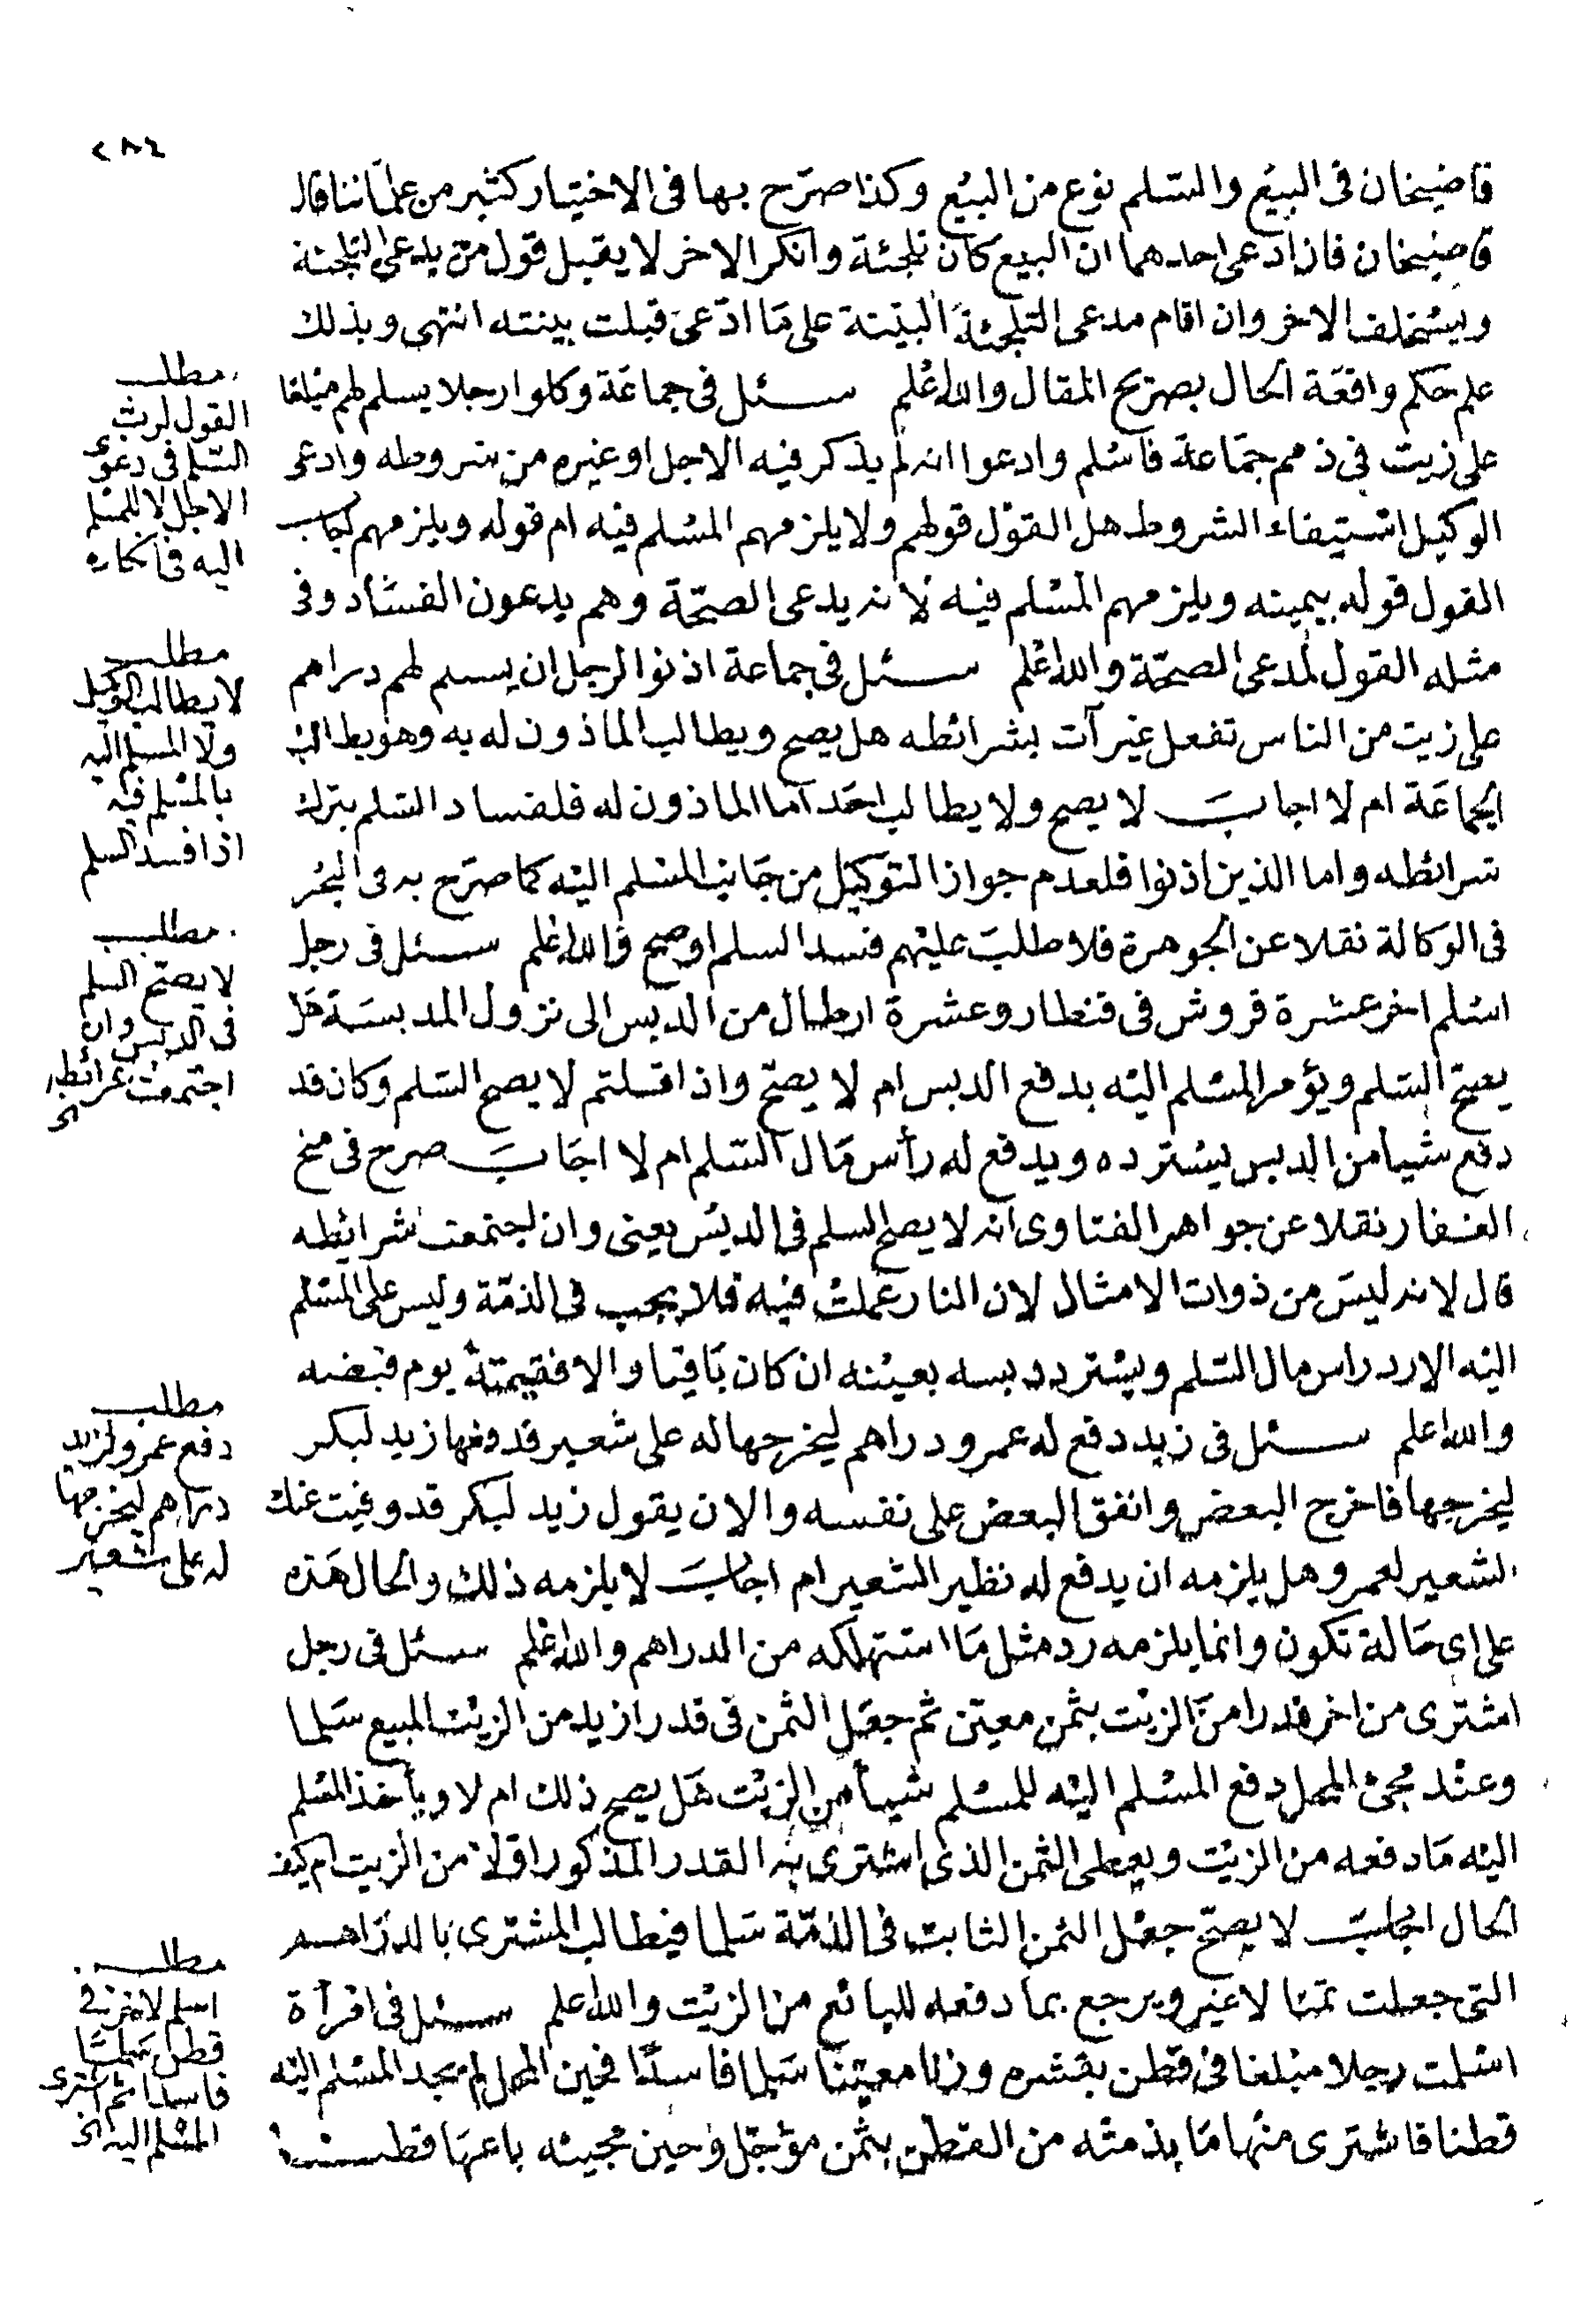 ٢٨٤
قاضيخان فى البيع والسّلم نوع من البيع وكذا صرّح بها فى الاختيار كثير من علمائنا قال
قاضيخان فاذا دعى احدهما ان البيع كان تلجئة وانكر الاخر لا يقبل قول من يدعى التلجئة
ويستحلف الاخر وان اقام مدعى التلجئة البيّنة على مَا ادّعى قبلت بينته انتهى وبذلك
علم حكم واقعة الحال بصريح المقال والله اعلم سئل فى جماعَة وكلوا رجلا يسلم لهم مبلغا
على زيت فى ذمم جمَاعة فاسْلم وادعوا انه لم يذكر فيه الاجل او غيره من شروطه وادعى
الوكيل استيفاء الشروط هل القوْل قولهم ولا يلزمهم المسْلم فيْه ام قوله ويلزمهم اجاب
القول قوله بيمينه ويلزمهم المسْلم فيه لانه يدعى الصحّة وهم يدعون الفسَاد وفى
مثله القول لمدعى الصحّة والله اعْلم سئل فى جماعة اذنوا لرجل ان يسلم لهم دراهم
على زيت من الناس تفعل غير آت بشرائطه هل يصح ويطالب الماذون له به وهو يطالب
الجماعَة ام لا اجابَ لا يصح ولا يطالب احَد اما الماذون له فلفساد السّلم بترك
شرائطه واما الذين اذنوا فلعدم جواز التوكيل من جَانب المسْلم اليْه كما صرّح به فى البحْر
فى الوكالة نقلا عن الجوهرة فلا طلبَ عليْهم فسد السلم او صح والله اعْلم سئل فى رجل
اسْلم اخر عشرة قروش فى قنطار وعشرة ارطال من الدبس الى نزول المدبسَة هَل
يصحّ السّلم ويؤمر المسْلم اليْه بدفع الدبس ام لا يصحّ واذا قلتم لا يصح السّلم وكان قد
دفع شيأ من الدبس يسْترده ويدفع له رأس مَال السّلم ام لا اجَابَ صرح فى منح
الغفار نقلا عن جواهر الفتاوى انه لا يصح السلم فى الدبْس يعنى وان اجتمعت شرائطه
قال لانه ليسَ من ذوات الامثال لان النار عَملتْ فيْه فلا يجب فى الذمّة وليس على المسْلم
اليْه الا رد راس مال السّلم ويسْترد دبسه بعيْنه ان كان بَاقيا والا فقيمتهُ يوم قبضه
والله اعلم سئل فى زيد دفع له عمرو دراهم ليخرجها له على شعير قد دفعها زيد لبكر
ليخرجها فاخرج البعض وانفق البعض على نفسه والان يقول زيد لبكر قد وفيت عنك
الشعير لعمرو هل يلزمه ان يدفع له نظير الشعير ام اجابَ لا يلزمه ذلك والحال هَذه
على اى حَالة تكون وانما يلزمه رد مثل مَا استهلكه من الدراهم والله اعْلم سئل فى رجل
اشترى من اخر قدرا منَ الزيْت بثمن معيّن ثم جعَل الثمن فى قدر ازيد من الزيْت المبيع سَلما
وعنْد مجئ المحل دفع المسْلم اليْه للمسْلم شيأ من الزيْت هَل يصح ذلك ام لا ويأخذ المسْلم
اليْه مَا دفعه من الزيْت ويعطى الثمن الذى اشترى به القدر المذكور اوّلا من الزيت ام كيف
الحال اجابَ لا يصحّ جعْل الثمن الثابت فى الذمّة سَلما فيطالب المشترى بالدرَاهم
التى جعلت ثمنا لا غير ويرجع بما دفعه للبائع من الزيْت والله اعلم سئل فى امرأة
اسْلمت رجلا مبْلغا فى قطن بقشره وزنا معيّنا سَلما فاسدًا فحين المحل لم يجد المسْلم اليْه
قطنا فاشترى منْها مَا بذمتْه من القطن بثمن مؤجّل وحين مجيئه باعهَا قطنا
مطلب
القول لرب
السّلم فى دعوى
الاجل لا للمسْلم
اليه فى انكاره
مطلب
لا يطالب الوكيل
ولا المسلم اليه
بالمسْلم فيْه
اذا فسد السلم
مطلب
لا يصحّ السلم
فى الدبس وان
اجتمعت شرائطه
الخ
مطلب
دفع عمرو لزيد
دراهم ليخرجها
له على شعير
مطلب
اسلم لاخر فى
قطن سَلمًا
فاسدا ثم اشترى
المسْلم اليه الخ